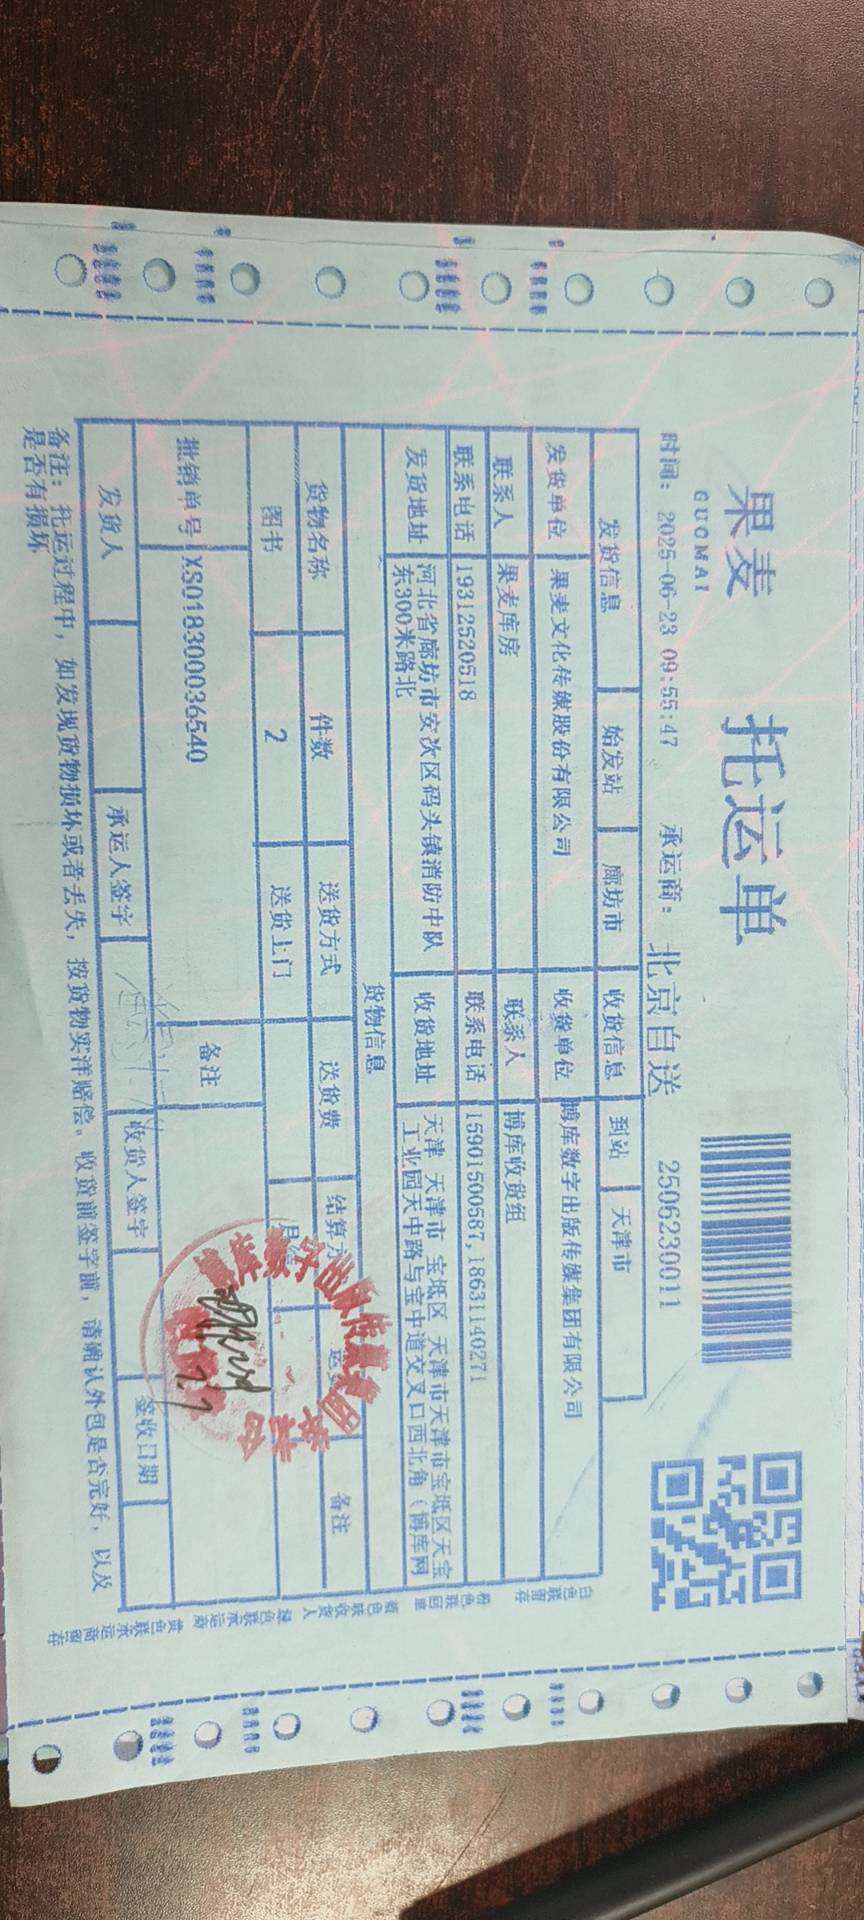 果麦
GUOMAI
托运单
时间: 2025-06-23 09:55:47
承运商: 北京自送
2506230011
发货信息 始发站 廊坊市 收货信息 到站 天津市
发货单位 果麦文化传媒股份有限公司 收货单位 博库数字出版传媒集团有限公司
联系人 果麦库房 联系人 博库收货组
联系电话 19312520518 联系电话 15901500587,18631140271
发货地址 河北省廊坊市安次区码头镇消防中队
东300米路北
收货地址 天津 天津市 宝坻区 天津市天津市宝坻区天宝
工业园天中路与宝中道交叉口西北角（博库网
货物信息
货物名称 件数 送货方式 送货费 结算方 备注
图书 2 送货上门
批销单号 XS018300036540 备注
发货人 承运人签字 收货人签字 签收日期
备注: 托运过程中, 如发现货物损坏或者丢失, 按货物实洋赔偿。收货前签字前, 请确认外包是否完好, 以及
是否有损坏
白色联留存 粉色联回重 蓝色联收货人 绿色联承运商 黄色联承运商留存